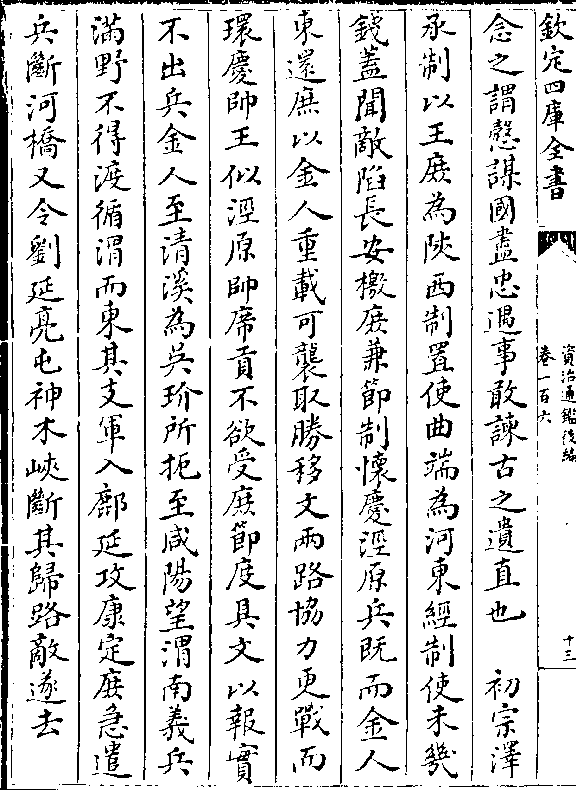 欽定四庫全書
資治通鑑後編
卷一百六
十三
念之謂慤謀國盡忠遇事敢諫古之遺直也　初宗澤
承制以王庶為陜西制置使曲端為河東經制使未幾
錢蓋聞敵陷長安檄庶兼節制懷慶涇原兵既而金人
東還庶以金人重載可襲取勝移文兩路協力更戰而
環慶帥王似涇原帥席貢不欲受庶節度具文以報實
不出兵金人至清溪為吳玠所扼至咸陽望渭南義兵
滿野不得渡循渭而東其支軍入鄜延攻康定庶急遣
兵斷河橋又令劉延亮屯神木峽斷其歸路敵遂去